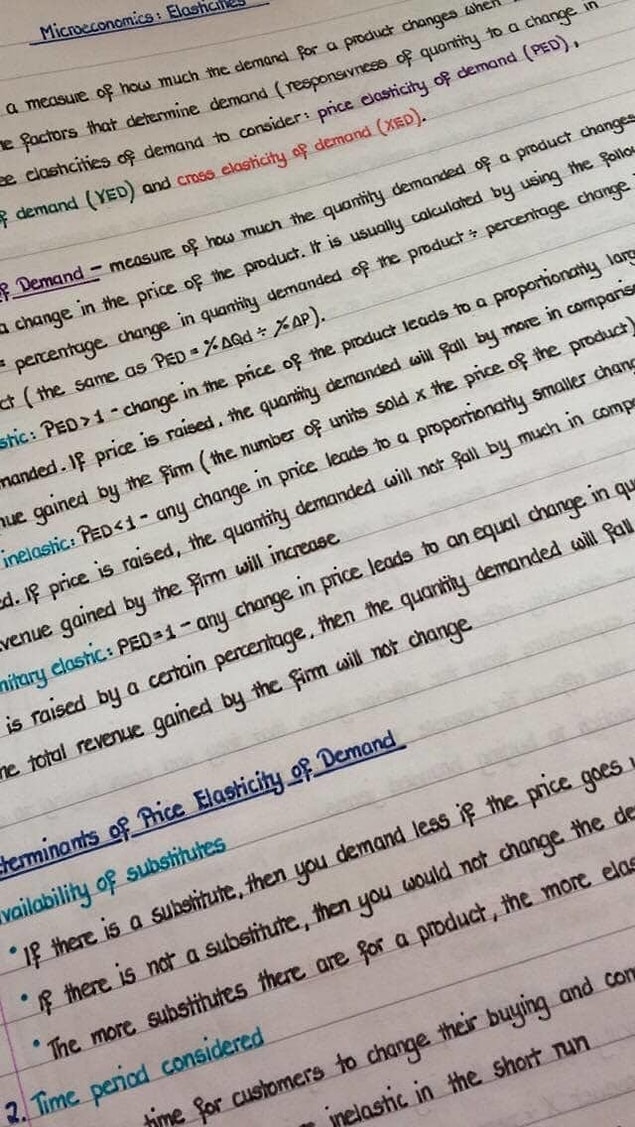 Microeconomics: Elasticities
a measure of how much the demand for a product changes when
factors that determine demand (responsivness of quantity to a change in
elasticities of demand to consider: price elasticity of demand (PED),
demand (YED) and cross elasticity of demand (XED).
Demand - measure of how much the quantity demanded of a product changes
a change in the price of the product. It is usually calculated by using the
= percentage change in quantity demanded of the product ÷ percentage change
(the same as PED = %ΔQd ÷ %ΔP).
PED > 1 - change in the price of the product leads to a proportionatly
If price is raised, the quantity demanded will fall by more in
gained by the firm (the number of units sold x the price of the product)
inelastic: PED < 1 - any change in price leads to a proportionatly smaller
If price is raised, the quantity demanded will not fall by much in
gained by the firm will increase
elastic: PED = 1 - any change in price leads to an equal change in
is raised by a certain percentage, then the quantity demanded will fall
total revenue gained by the firm will not change
of Price Elasticity of Demand
of substitutes
• If there is a substitute, then you demand less if the price goes
• If there is not a substitute, then you would not change the
• The more substitutes there are for a product, the more
2. Time period considered
time for customers to change their buying and
inelastic in the short run